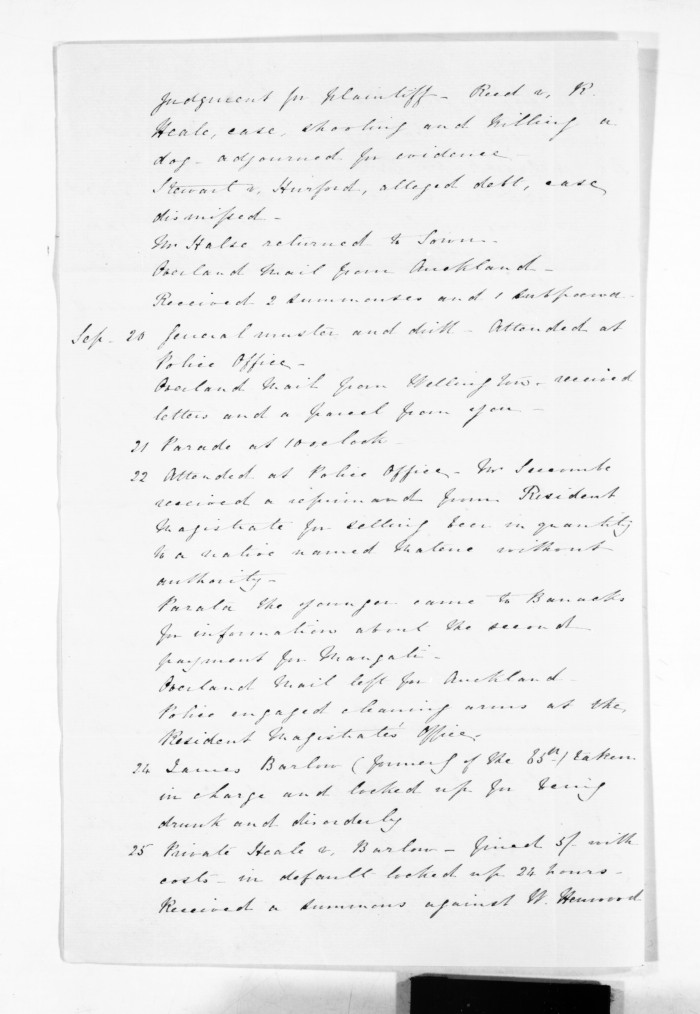 Judgment for Plaintiff - Reed v. R.
Heale, case, shooting and killing a
dog - adjourned for evidence -
Stewart v. Hurford, alleged debt, case
dismissed -
Mr Halse returned to Town -
Overland Mail from Auckland -
Received 2 summonses and 1 subpoena -
Sep - 20 General muster and drill - Attended at
Police Office -
Overland Mail from Wellington - received
letters and a parcel from you -
21 Parade at 10 o'clock -
22 Attended at Police Office - Mr Seccombe
received a reprimand from Resident
Magistrate for selling beer in quantity
to a native named Matene without
authority -
Parata the younger came to Barracks
for information about the second
payment for Mangati -
Overland Mail left for Auckland -
Police engaged cleaning arms at the
Resident Magistrate's Office.
24 James Barlow (formerly of the 65th) taken
in charge and locked up for being
drunk and disorderly
25 Private Heale v. Barlow - fined 5/- with
costs - in default locked up 24 hours -
Received a summons against W. Henwood